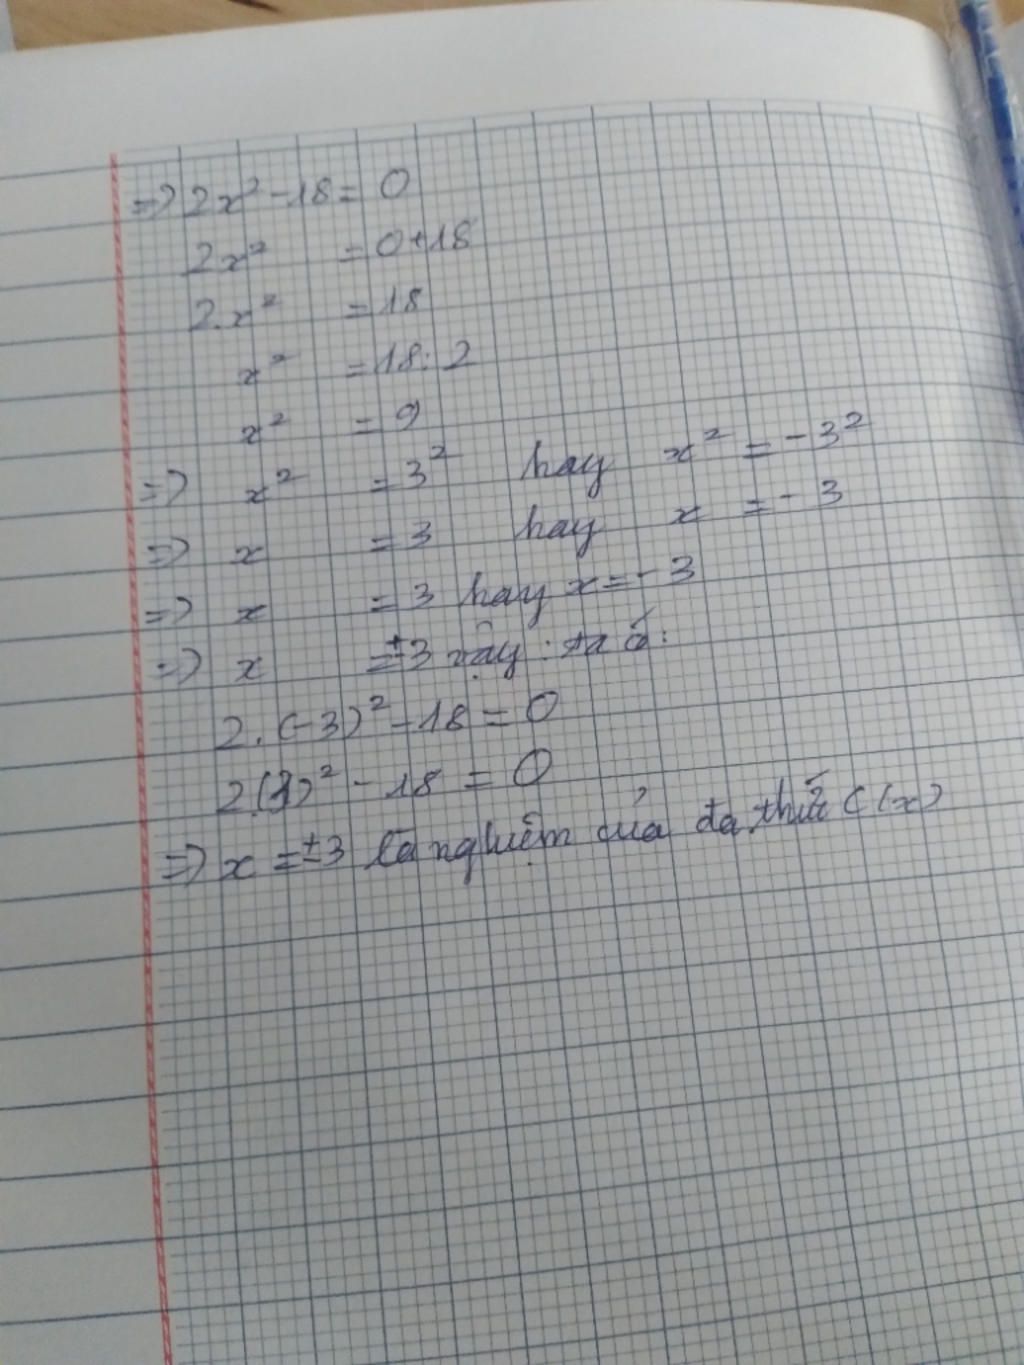 => 2x² - 18 = 0
2x² = 0+18
2.x² = 18
x² = 18:2
x² = 9
=> x² = 3² hay x² = -3²
=> x = 3 hay x = -3
=> x = 3 hay x = -3
=> x = ±3 vậy : ta có:
2.(-3)² - 18 = 0
2.(3)² - 18 = 0
=> x = ±3 là nghiệm của đa thức C(x)